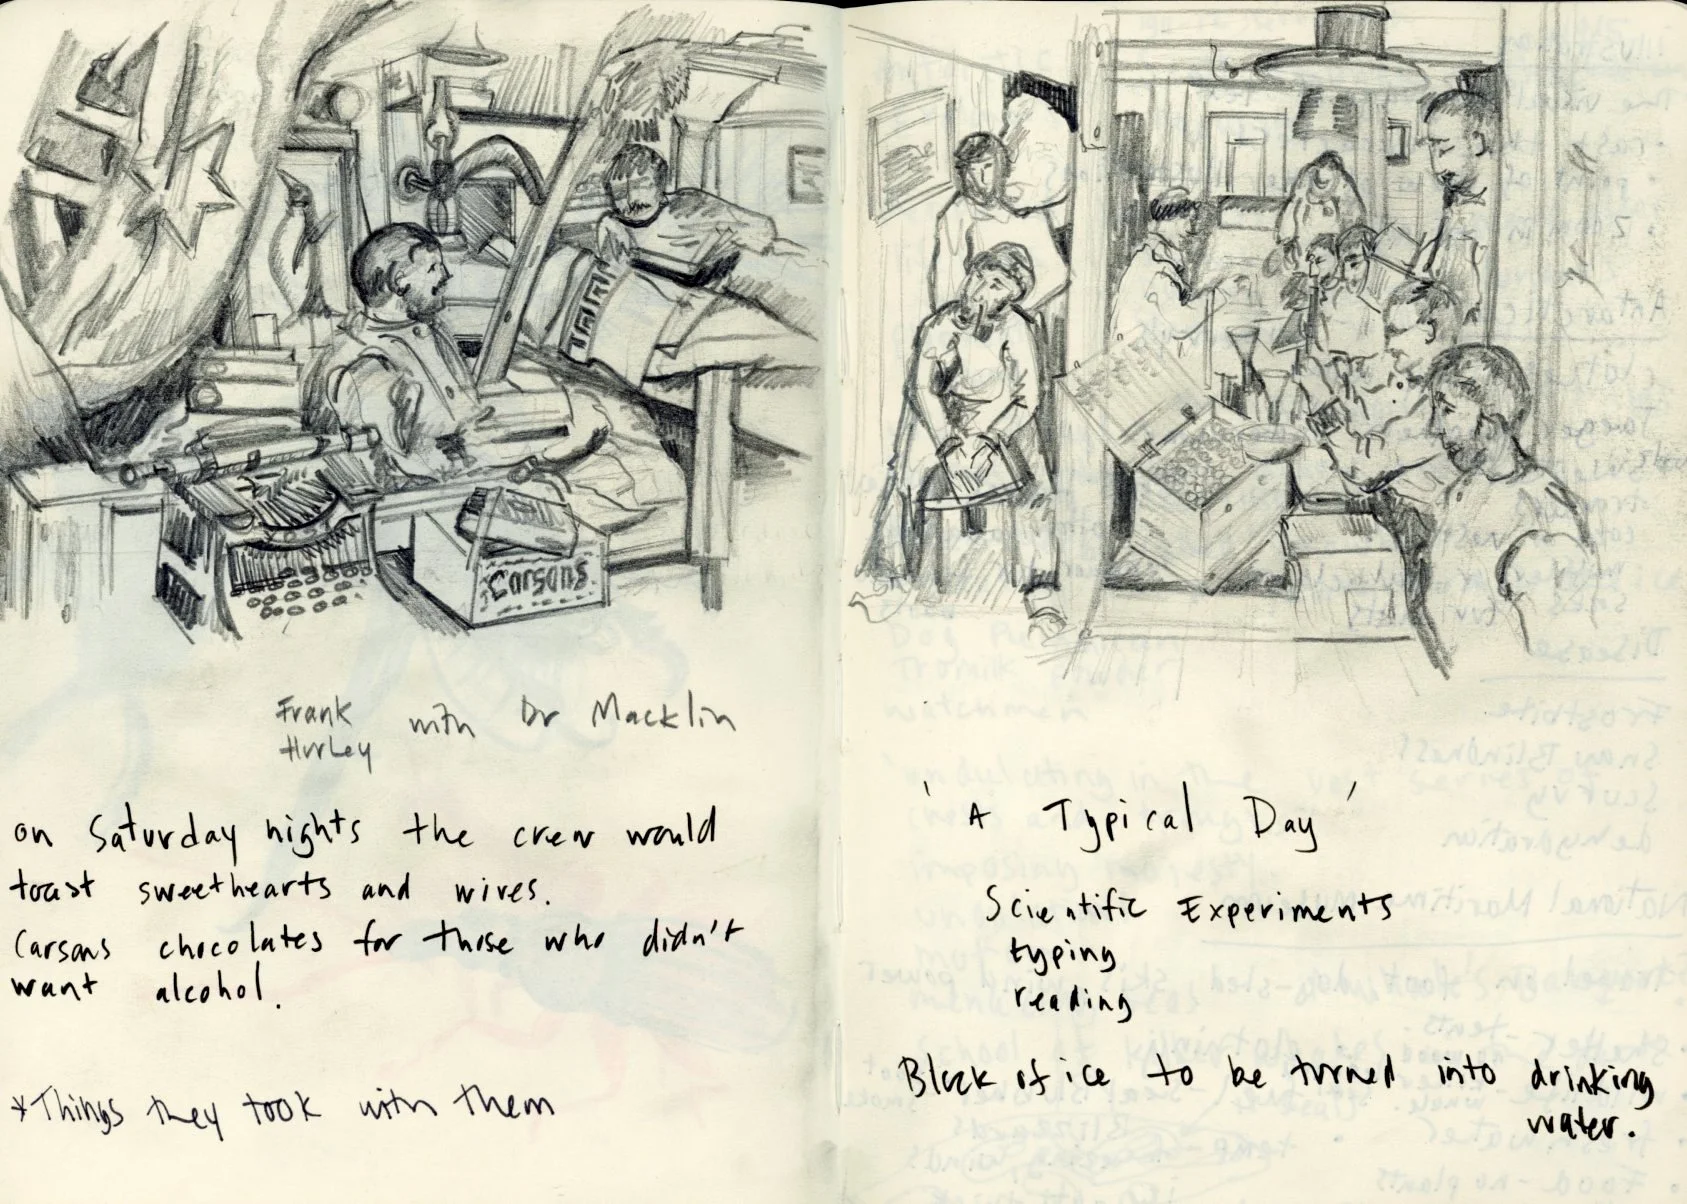 Carsons
Frank
Hurley
with Dr Macklin
on Saturday nights the crew would
toast sweethearts and wives.
Carsons chocolates for those who didn't
want alcohol.
*Things they took with them
'A Typical Day'
Scientific Experiments
typing
reading
Block of ice to be turned into drinking
water.